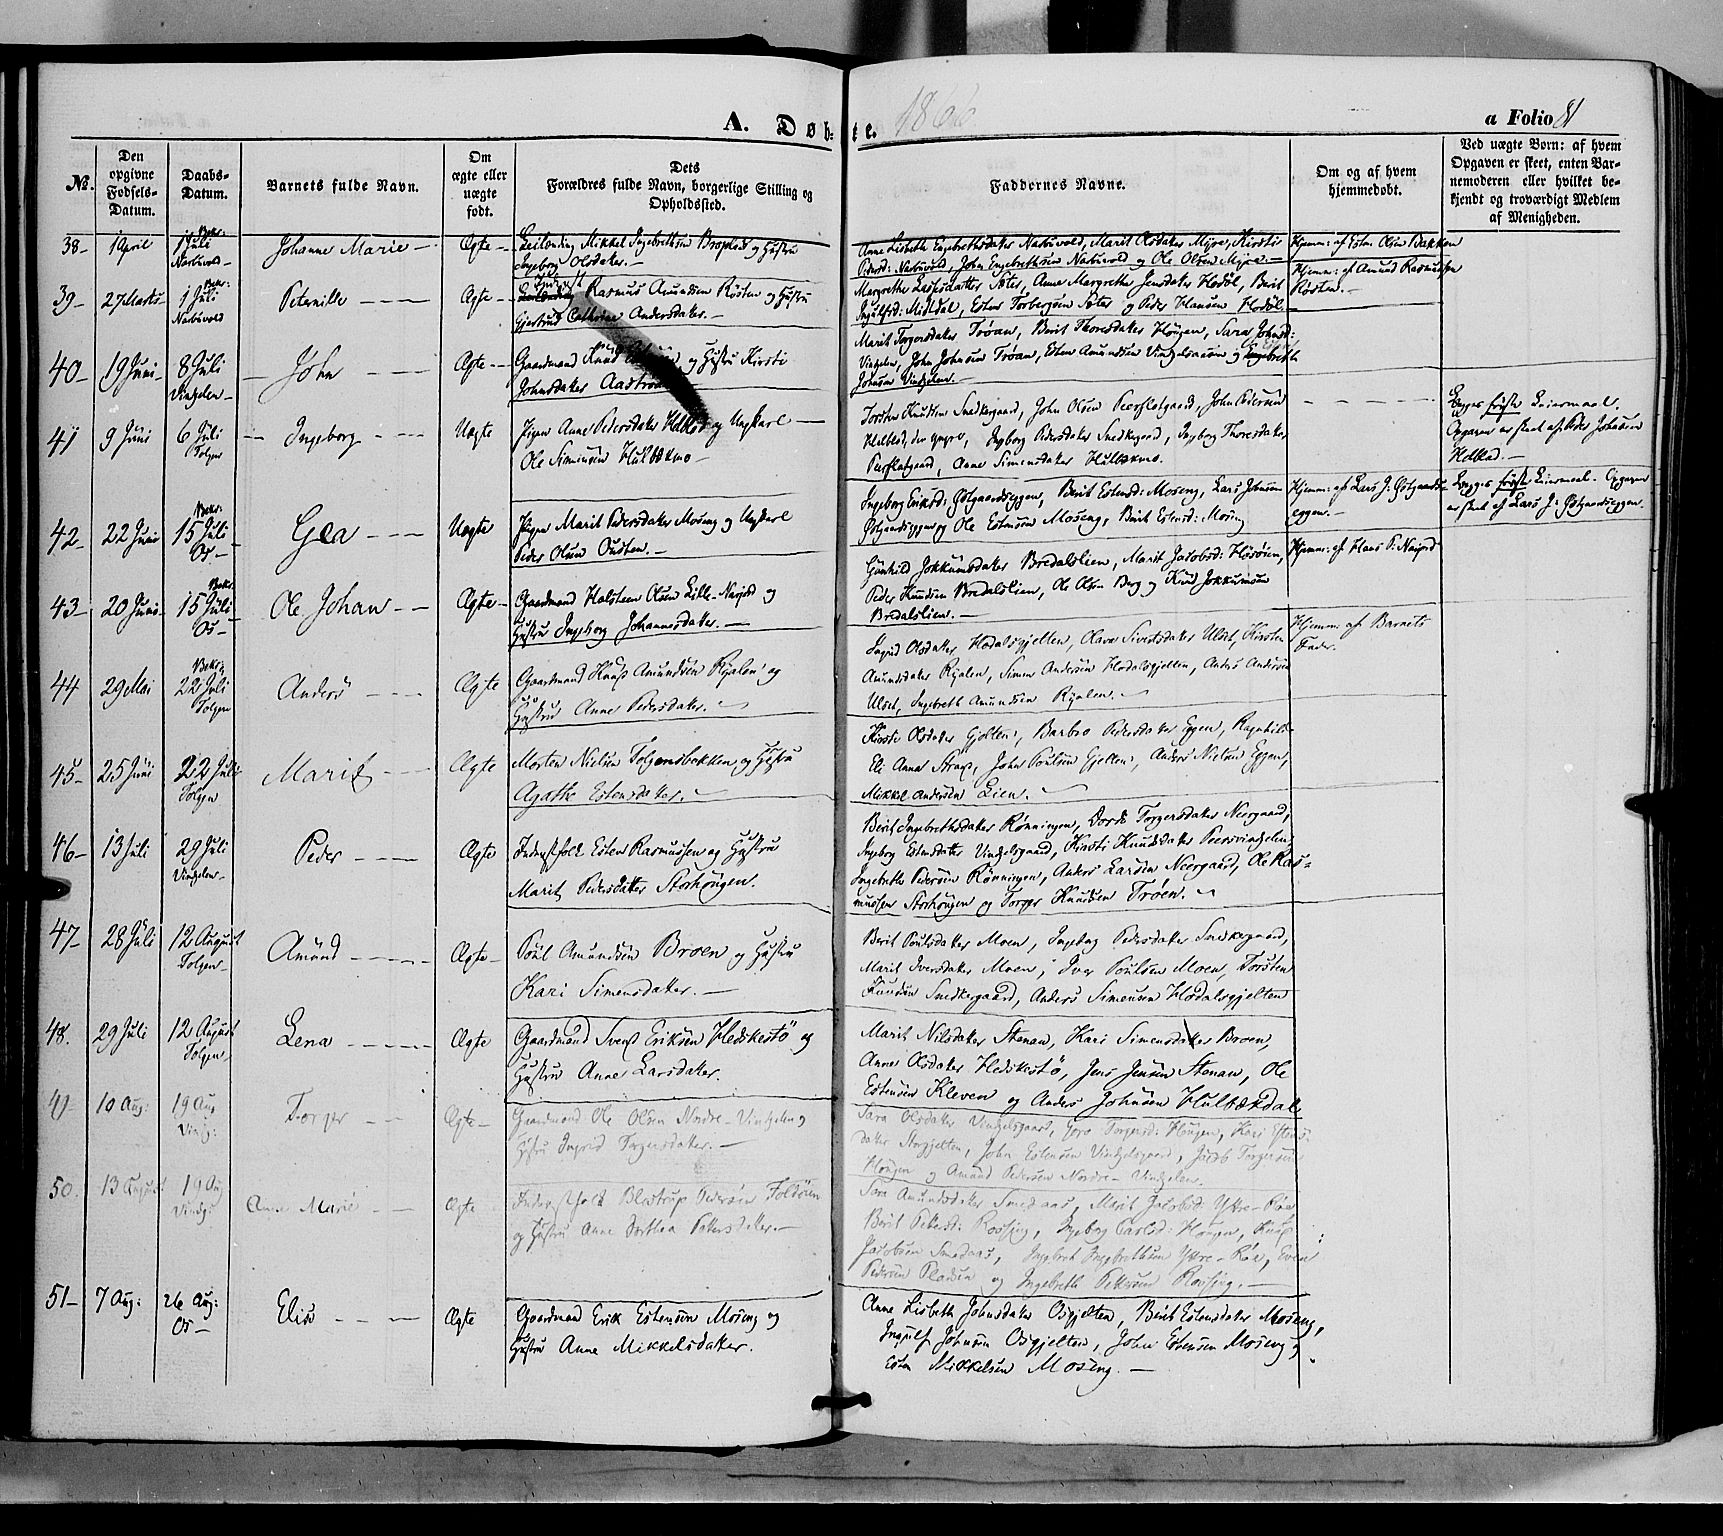 A. Døb-
te. 1866.
a Folio 81
No.
Den opgivne Fødsels-Datum.
Daabs-Datum.
Barnets fulde Navn.
Om ægte eller uægte født.
Dets Forældres fulde Navn, borgerlige Stilling og Opholdssted.
Faddernes Navne.
Om og af hvem hjemmedøbt.
Ved uægte Børn: af hvem Opgaven er skeet, enten Barnemoderen eller hvilket bekjendt og troværdigt Medlem af Menigheden.
38-
1 April
Bekr:
1 Juli
Narbuvold-
Johanne Marie -
Ægte -
Leilending Mikkel Ingebrethsen og Hustru
Ingeborg Olsdatter. -
Anne Lisbeth Engebrethsdatter Narbuvold, Marit Olsdatter Myre, Kirsti
Pedersd: Narbuvold, John Engebrethsen Narbuvold og Ole Olsen Myre. -
Hjemm: af Esten Olsen Bakken
39-
27 Marts
Bekr:
1 Juli
Narbuvold
Peternille - - -
Ægte -
Rasmus Amundsen Røsten og Hustru
Gjertrud Cathrine Andersdatter. -
Margrethe Sæter, Anne Margrethe Jensdatter Hodøl, Berit
Ingulfsd: Midtdal, Esten Torbergsen Sæter og Peder Hansen Hodøl -
Hjemm: af Amund Rasmussen
Røsten. -
40-
19 Juni-
8 Juli
Vingelen-
John - - -
Ægte - -
Gaardmand Knud og Hustru Kirsti
Johnsdatter
Marit Torgersdatter Trøan, Berit Thoresdatter Hougen, Sara Johnsd:
Vingelen, John Johnsen Trøan, Esten Amundsen Vingelsaasen og
Johnsen Vingelen. -
41
9 Juni
6 Juli
Tolgen
Ingeborg - - -
Uægte
Pigen Anne Pedersdatter og Ungkarl -
Ole Simensen Hulbækmo -
Torsten Knudsen Snedkergaard, John Olsen Peersletgaard, John Pedersen
den yngre, Ingeborg Pedersdatter Snedkergaard, Ingeborg Thoresdatter
Peersletgaard, Anne Simensdatter Hulbækmo.
Begges første Leiermaal.
Opgaven er skeet af Peder Johnsen
42-
22 Juni
Bekr:
15 Juli
Os -
Gea - - -
Uægte
Pigen Marit Persdatter Moseng og Ungkarl
Peder Olsen Ousten. -
Ingeborg Eriksd: Østgaardseggen, Berit Estensd: Moseng, Lars Johnsen
Østgaardseggen og Ole Estensen Moseng, Berit Estensd: Moseng
Hjemm: af Lars J: Østgaards-
eggen. -
Begges første Leiermaal. Opgaven
er skeet af Lars J: Østgaardseggen.
43-
20 Juni-
Bekr:
15 Juli
Os -
Ole Johan - -
Ægte -
Gaardmand Halsteen Olsen Lille-Narjord og
Hustru Ingeborg Johannesdatter. -
Gunhild Jokkumsdatter Bredalslien, Marit Jacobsd:
Peder Knudsen Bredalslien, Ole Olsen Berg og Knud Jokkumsen
Bredalslien. -
Hjemm: af Hans P: Narjord
44
29 Mai
Bekr:
22 Juli
Tolgen
Anders - - -
Ægte
Gaardmand Amundsen Ryalen og
Hustru Anne Pedersdatter.
Ingrid Olsdatter Hodalsgjelten, Olava Sivertsdatter Ulset, Kirsten
Amundsdatter Ryalen, Simen Andersen Hodalsgjelten, Anders Andersen
Ulset, Ingebreth Amundsen Ryalen.
Hjemm: af Barnets
Fader.
45-
25 Juni
22 Juli
Tolgen
Marit - - -
Ægte
Morten Nielsen Tolgensbakken og Hustru
Agathe Estensdatter.
Kirsti Olsdatter Gjelten, Barbro Pedersdatter Eggen, Ragnhild
Eli Anna John Poulsen Gjelten, Anders Nielsen Eggen,
Mikkel Andersen Lien.
46-
13 Juli
29 Juli
Vingelen-
Peder - - -
Ægte
Inderstfolk Esten Rasmussen og Hustru
Marit Pedersdatter Storhougen.
Berit Ingebrethsdatter Rønningen, Dordi Torgersdatter Neergaard,
Ingeborg Estensdatter Vingelsgaard, Kirsti Knudsdatter Peersvingelen,
Ingebreth Pedersen Rønningen, Anders Larsen Neergaard, Ole Ras-
mussen Storhougen og Torger Knudsen Trøen.
47-
28 Juli
12 August
Tolgen-
Amund - - - -
Ægte -
Poul Amundsen Broen og Hustru
Kari Simensdatter. -
Berit Poulsdatter Moen, Ingeborg Pedersdatter Snedkergaard,
Marit Iversdatter Moen, Iver Poulsen Moen, Torsten
Knudsen Snedkergaard, Anders Simensen Hodalsgjelten
48.
29 Juli
12 August
Tolgen
Lena - - - -
Ægte
Gaardmand Svend Eriksen og
Hustru Anne Larsdatter.
Marit Nilsdatter Stenan, Kari Simensdatter Broen,
Anne Olsdatter Jens Jensen Stenan, Ole
Estensen Kleven og Anders Johnsen Hulbækdal
49-
10 Aug:
19 Aug
Ving:
Torger - -
Ægte -
Gaardmand Ole Olsen Nordre-Vingelen og
Hustru Ingrid Torgersdatter. -
Sara Olsdatter Vingelsgaard, Goro Torgersd: Hougen, Kari Estens-
datter John Estensen Vingelsgaard, Jacob Torgersen
Hougen og Amund Pedersen Nordre-Vingelen.
50.
13 August
19 Aug
Vingl:
Anne Marie - -
Ægte
Inderstfolk Pedersen
og Hustru Anne Dorthea Pettersdatter. -
Sara Amundsdatter Smedaas, Marit Jacobsd: Ytre-Røe
Berit Pettersd: Røssing, Ingeborg Carlsd: Hougen, Knud
Jacobsen Smedaas, Ingebret Ingebrethsen Ytre-Røe, Even
Pedersen Pladsen og Ingebreth Pettersen Røssing. -
51-
7 Aug:
26 Aug:
Os -
Elis - - -
Ægte
Gaardmand Erik Estensen Moseng og
Hustru Anne Mikkelsdatter.
Anne Lisbeth Johnsdatter Osgjelten, Berit Estensdatter Moseng,
Ingulf Johnsen Osgjelten, John Estensen Moseng og
Esten Mikkelsen Moseng. -